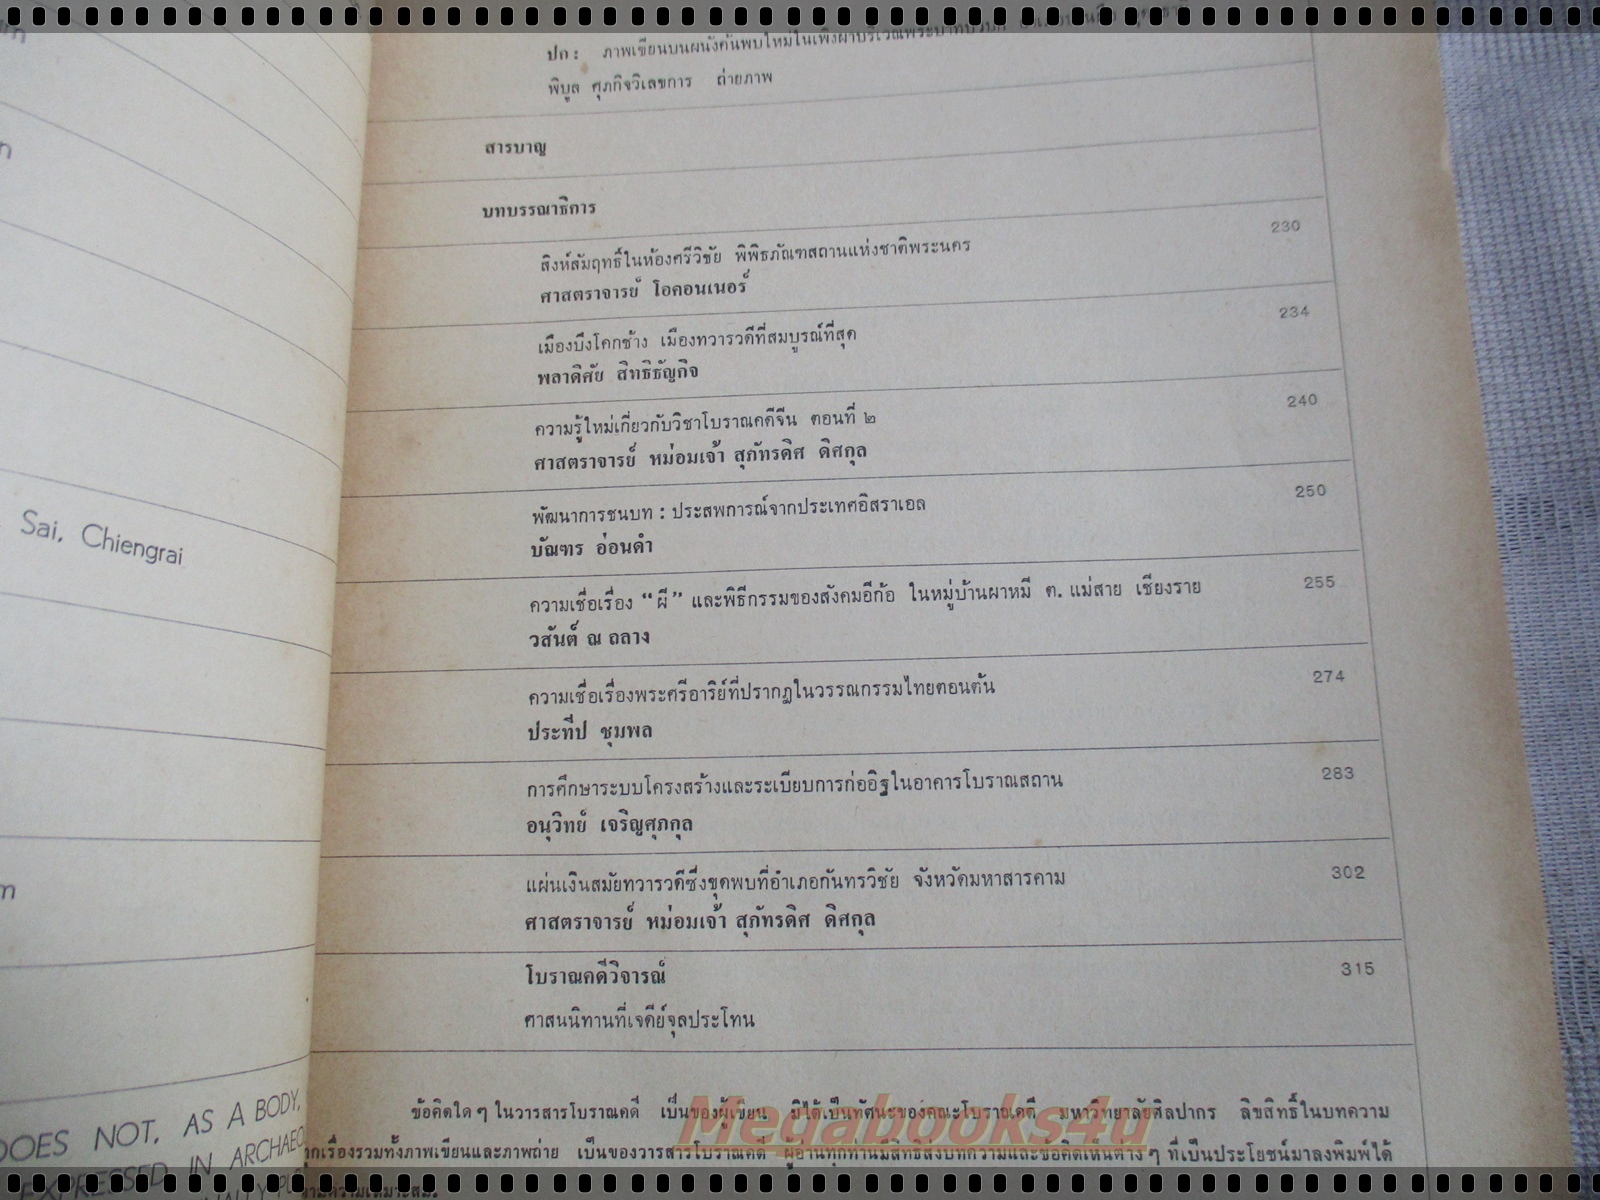 ปก : ภาพเขียนบนผนังค้นพบใหม่ในเพิงผาบริเวณพระบาทบัวบก
พิบูล ศุภกิจวิเลขการ ถ่ายภาพ
สารบาญ
บทบรรณาธิการ
สิงห์สัมฤทธิ์ในห้องศรีวิชัย พิพิธภัณฑสถานแห่งชาติพระนคร 230
ศาสตราจารย์ โอคอนเนอร์
เมืองบึงโคกช้าง เมืองทวารวดีที่สมบูรณ์ที่สุด 234
พลาดิศัย สิทธิธัญกิจ
ความรู้ใหม่เกี่ยวกับวิชาโบราณคดีจีน ตอนที่ ๒ 240
ศาสตราจารย์ หม่อมเจ้า สุภัทรดิศ ดิศกุล
พัฒนาการชนบท : ประสพการณ์จากประเทศอิสราเอล 250
บัณฑร อ่อนดำ
ความเชื่อเรื่อง “ผี” และพิธีกรรมของสังคมอีก้อ ในหมู่บ้านผาหมี ต. แม่สาย เชียงราย 255
วสันต์ ณ ถลาง
ความเชื่อเรื่องพระศรีอาริย์ที่ปรากฏในวรรณกรรมไทยตอนต้น 274
ประทีป ชุมพล
การศึกษาระบบโครงสร้างและระเบียบการก่ออิฐในอาคารโบราณสถาน 283
อนุวิทย์ เจริญศุภกุล
แผ่นเงินสมัยทวารวดีซึ่งขุดพบที่อำเภอกันทรวิชัย จังหวัดมหาสารคาม 302
ศาสตราจารย์ หม่อมเจ้า สุภัทรดิศ ดิศกุล
โบราณคดีวิจารณ์ 315
ศาสนนิทานที่เจดีย์จุลประโทน
ข้อคิดใด ๆ ในวารสารโบราณคดี เป็นของผู้เขียน มิได้เป็นทัศนะของคณะโบราณคดี มหาวิทยาลัยศิลปากร ลิขสิทธิ์ในบทความ
ทุกเรื่องรวมทั้งภาพเขียนและภาพถ่าย เป็นของวารสารโบราณคดี ผู้อ่านทุกท่านมีสิทธิส่งบทความและข้อคิดเห็นต่าง ๆ ที่เป็นประโยชน์มาลงพิมพ์ได้
ตามความเหมาะสม.
Megabooks4u
Sai, Chiengrai
DOES NOT, AS A BODY,
EXPRESSED IN ARCHAEO